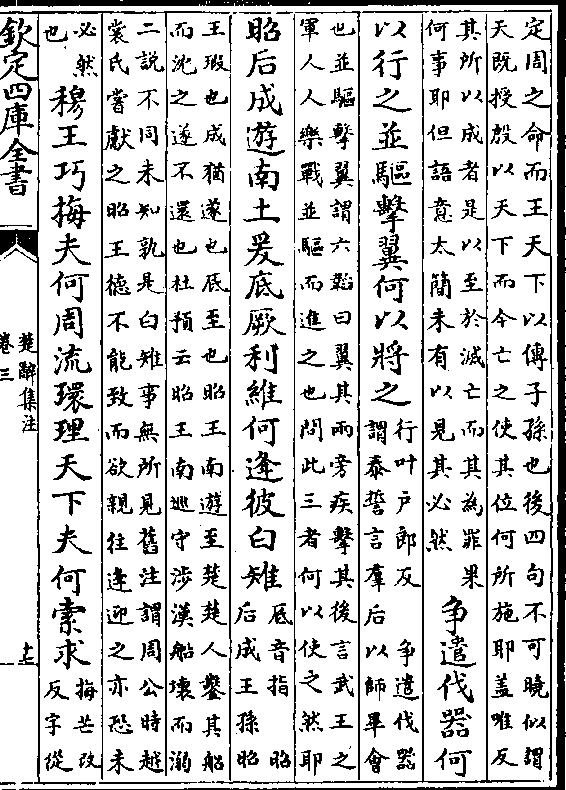 定周之命而王天下以傳子孫也後四句不可曉似謂
天既授殷以天下而今亡之使其位何所施耶蓋唯反
其所以成者是以至於滅亡而其為罪果
何事耶但語意太簡未有以見其必然
爭遣伐器何
以行之並驅擊翼何以將之
行叶户郎反 爭遣伐器
謂泰誓言羣后以師畢會
也並驅擊翼謂六韜曰翼其兩旁疾擊其後言武王之
軍人人樂戰並驅而進之也問此三者何以使之然耶
昭后成遊南土爰底厥利維何逢彼白雉
底音指 昭
后成王孫昭
王瑕也成猶遂也底至也昭王南遊至楚楚人鑿其船
而沈之遂不還也杜預云昭王南巡守涉漢船壞而溺
二說不同未知孰是白雉事無所見舊注謂周公時越
裳氏嘗獻之昭王德不能致而欲親往逢迎之亦恐未
必然
也
穆王巧梅夫何周流環理天下夫何索求
梅芒改
反字從
欽定四庫全書
楚辭集注
卷三
十七